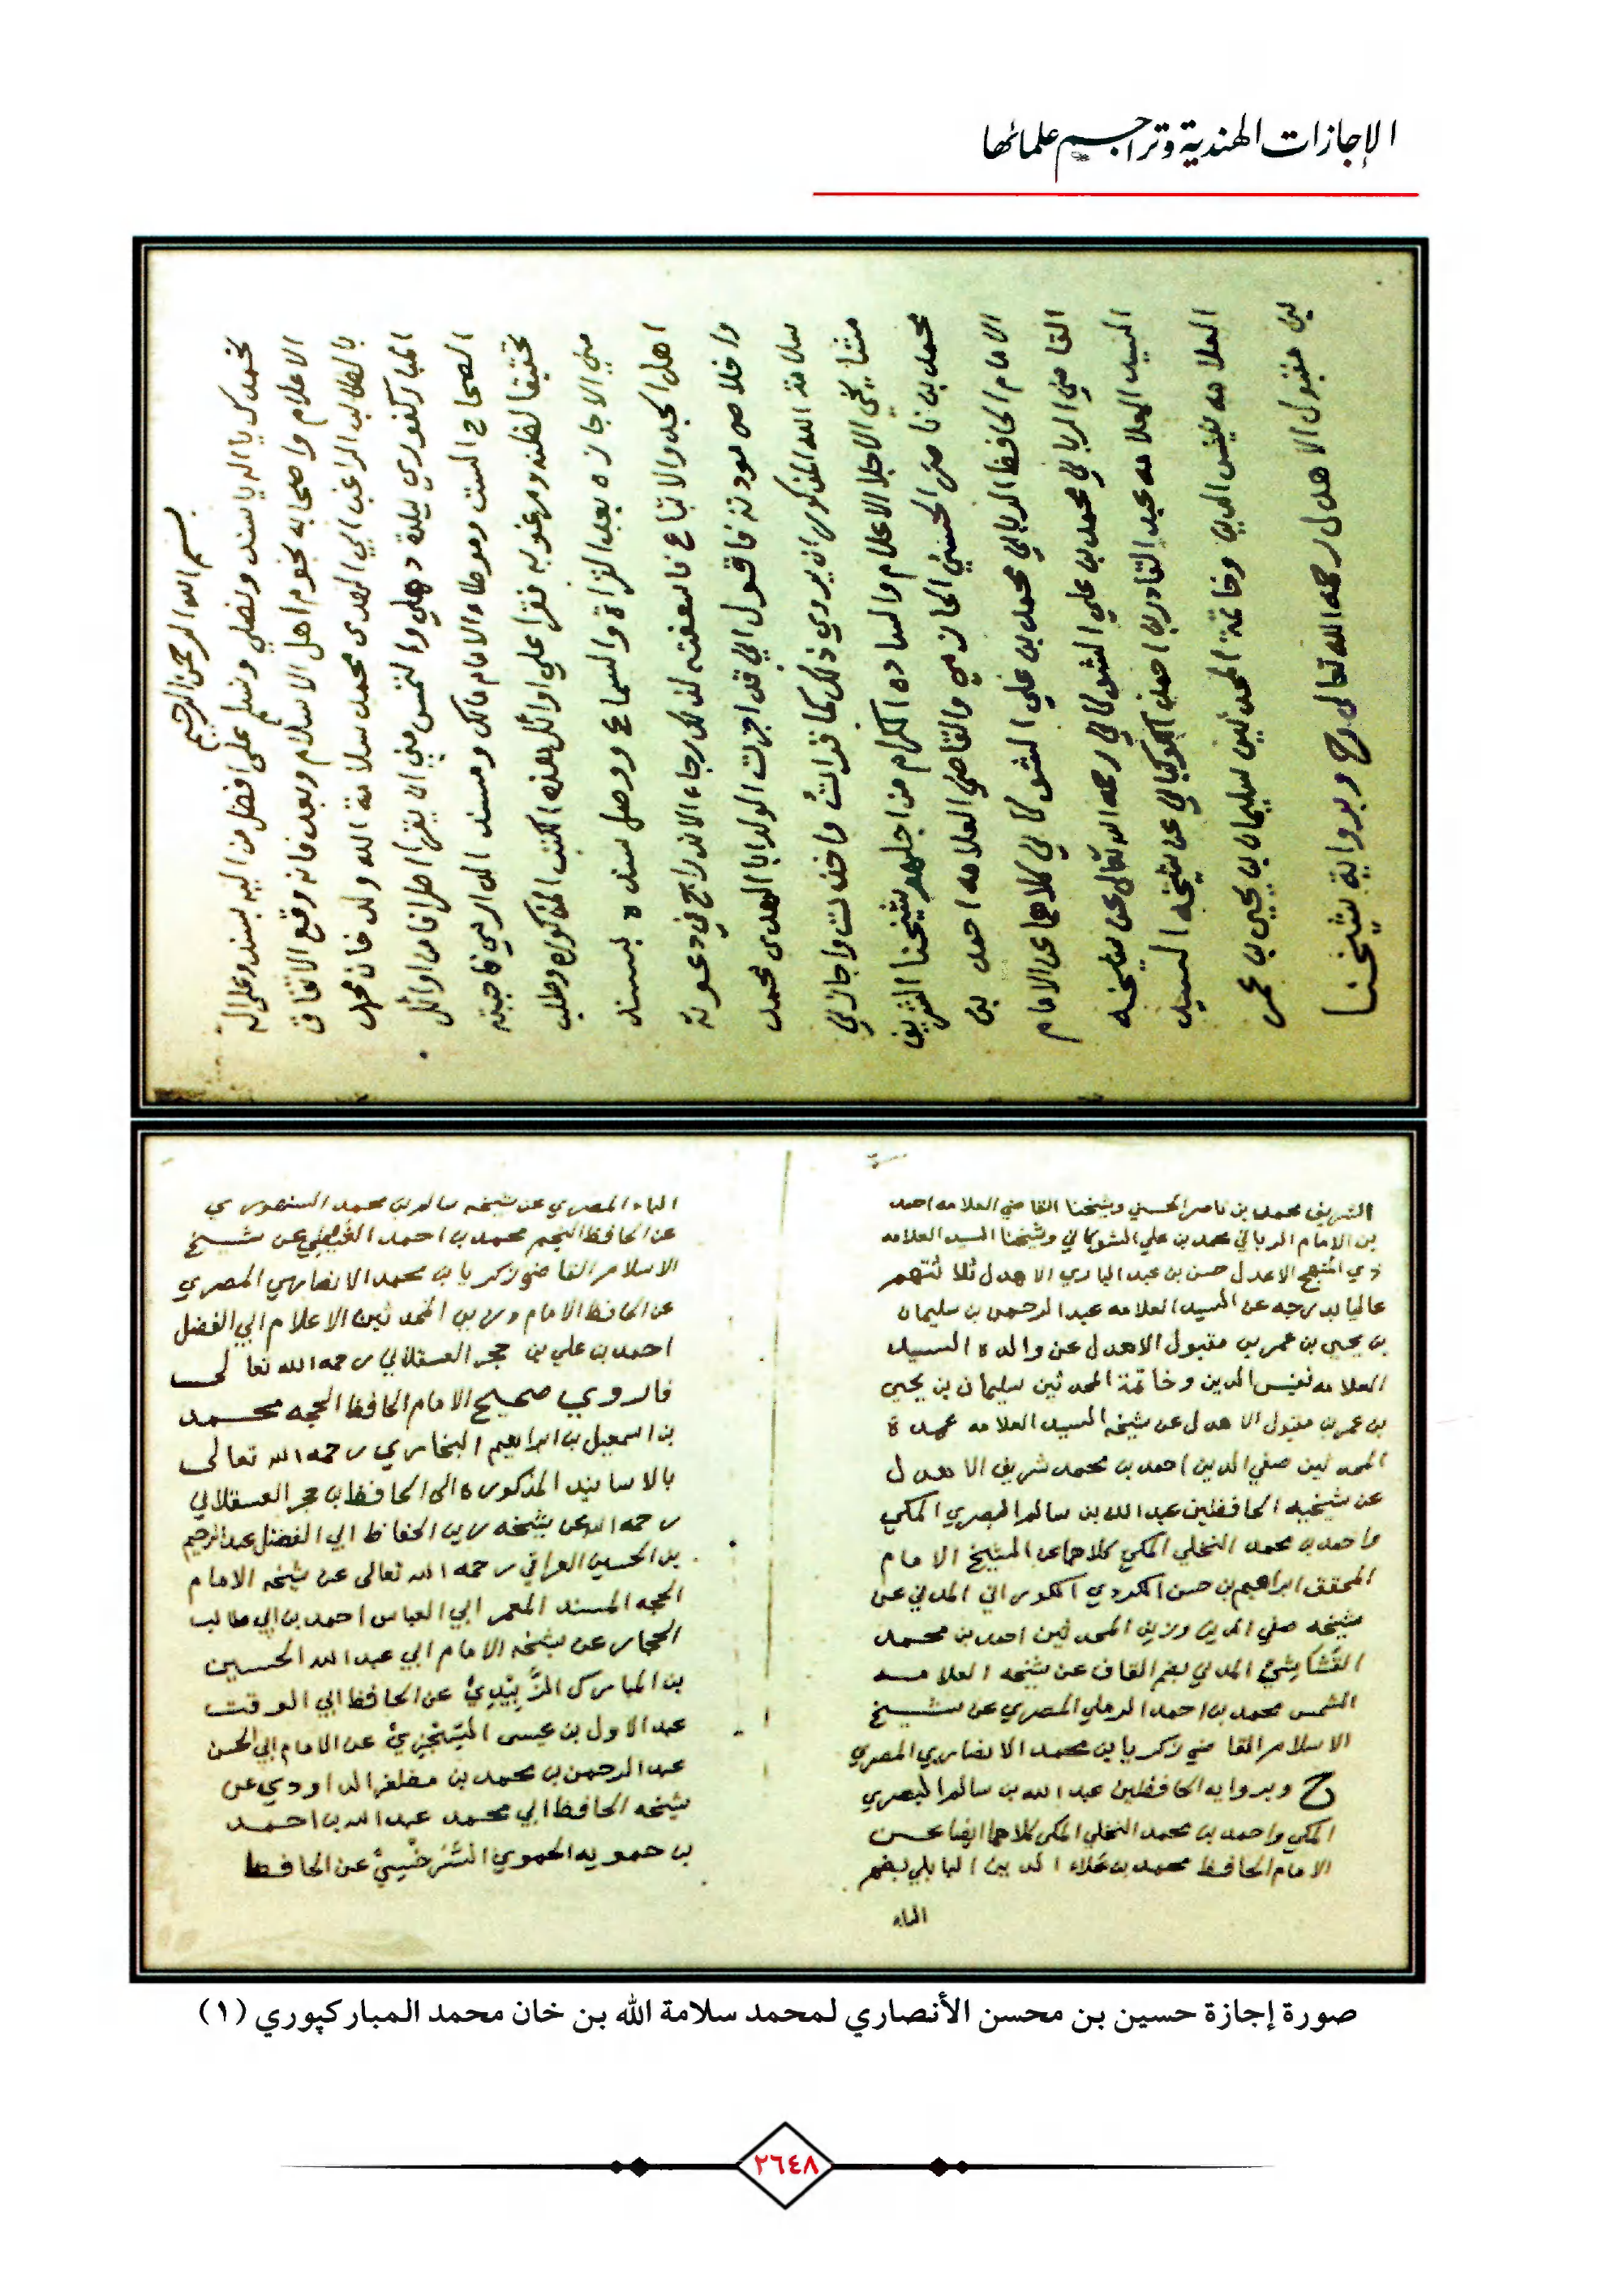 الإجازات الهندية وتراجم علمائها
بسم الله الرحمن الرحيم
نحمدك يا الله يا سند ونصلي ونسلم على افضل من اليه يسند وعلى آله
الاعلام واصحابه نجوم اهل الاسلام وبعد فانه وقع الاتفاق
بالطالب الراغب ابي الهدى محمد سلامة الله ولد خان محمد
المباركفوري ببلدة دهلي والتمس مني ان يقرأ اطرافا من اوائل
الصحاح الست وموطاء الامام مالك ومسند الدارمي فاجبته
تحقيقا لظنه ومرغوبه فقرا علي اوائل هذه الكتب المذكوره وطلب
مني الاجازه بعد القراة والسماع ووصل سنده بسند
اهل الجد والاتباع فاسعفته لذلك رجاء الاندراج في دعوته
واخلاص مودته فاقول اني قد اجزت الولد ابا الهدى محمد
سلامة الله المذكور ان يروي ذلك كما قرات واخذت واجازني
مشايخي الاجلا الاعلام والساده الكرام من اجلهم شيخنا الشريف
محمد بن ناصر الحسني الحازمي والقاضي العلامه احمد بن
الامام الحافظ الرباني محمد بن علي الشوكاني كلاهما عن الامام
القاضي الرباني محمد بن علي الشوكاني رحمه الله تعالى عن شيخه
السيد العلامه عبد القادر بن احمد الكوكباني عن شيخه السيد
العلامه نفيس الدين وخاتمة المحدثين سليمان بن يحيى بن عمر
بن مقبول الاهدل رحمه الله تعالى ح وبرواية شيخنا
الشريف محمد بن ناصر الحسني وشيخنا القاضي العلامه احمد
بن الامام الرباني محمد بن علي الشوكاني وشيخنا السيد العلامه
ذي المنهج الاعدل حسن بن عبد الباري الاهدل ثلاثتهم
عاليا بدرجه عن السيد العلامه عبد الرحمن بن سليمان
بن يحيى بن عمر بن مقبول الاهدل عن والده السيد
العلامه نفيس الدين وخاتمة المحدثين سليمان بن يحيى
بن عمر بن مقبول الاهدل عن شيخه السيد العلامه عمدة
المحدثين صفي الدين احمد بن محمد شريف الاهدل
عن شيخيه الحافظين عبد الله بن سالم البصري المكي
واحمد بن محمد النخلي المكي كلاهما عن الشيخ الامام
المحقق ابراهيم بن حسن الكردي الكوراني المدني عن
شيخه صفي الدين وزين المحدثين احمد بن محمد
القشاشي المدني بضم القاف عن شيخه العلامه
الشمس محمد بن احمد الرملي المصري عن شيخ
الاسلام القاضي زكريا بن محمد الانصاري المصري
ح وبروايه الحافظين عبد الله بن سالم البصري
المكي واحمد بن محمد النخلي المكي كلاهما ايضا عن
الامام الحافظ محمد بن علاء الدين البابلي بضم
الباء
الباء المصري عن شيخه سالم بن محمد السنهوري
عن الحافظ النجم محمد بن احمد الغيطي عن شيخ
الاسلام القاضي زكريا بن محمد الانصاري المصري
عن الحافظ الامام وزين المحدثين الاعلام ابي الفضل
احمد بن علي بن حجر العسقلاني رحمه الله تعالى
فاروي صحيح الامام الحافظ الحجه محمد
بن اسمعيل بن ابراهيم البخاري رحمه الله تعالى
بالاسانيد المذكوره الى الحافظ بن حجر العسقلاني
رحمه الله عن شيخه زين الحفاظ ابي الفضل عبد الرحيم
بن الحسين العراقي رحمه الله تعالى عن شيخه الامام
الحجه المسند المعمر ابي العباس احمد بن ابي طالب
الحجار عن شيخه الامام ابي عبد الله الحسين
بن المبارك الزَّبِيْدِيْ عن الحافظ ابي الوقت
عبد الاول بن عيسى السِّجْزِيْ عن الامام ابي الحسن
عبد الرحمن بن محمد بن مظفر الداودي عن
شيخه الحافظ ابي محمد عبد الله بن احمد
بن حمويه الحموي السَّرَخْسِيْ عن الحافظ
صورة إجازة حسين بن محسن الأنصاري لمحمد سلامة الله بن خان محمد المباركپوري (١)
٢٦٤٨